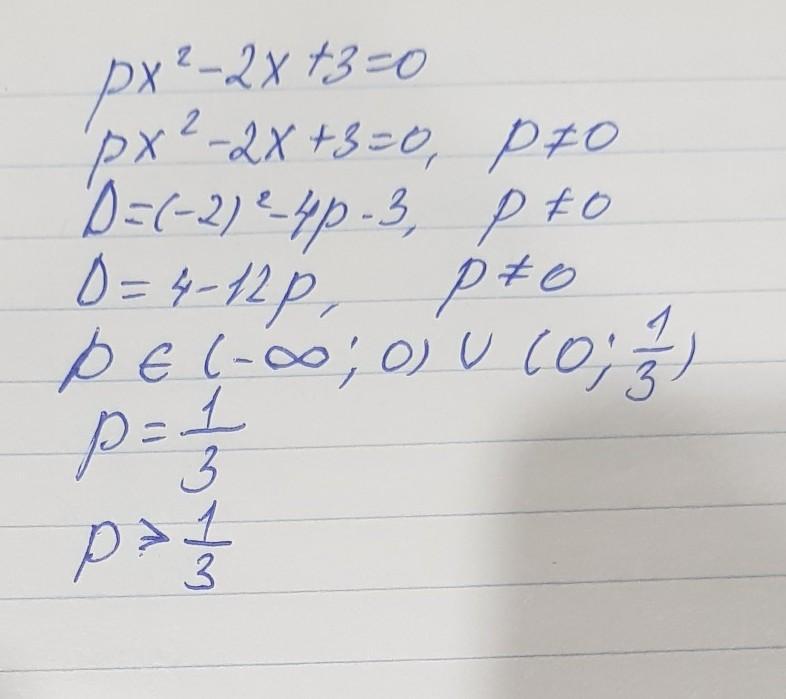 px² - 2x + 3 = 0
px² - 2x + 3 = 0, p ≠ 0
D = (-2)² - 4p · 3, p ≠ 0
D = 4 - 12p, p ≠ 0
p ∈ (-∞; 0) ∪ (0; 1/3)
p = 1/3
p > 1/3